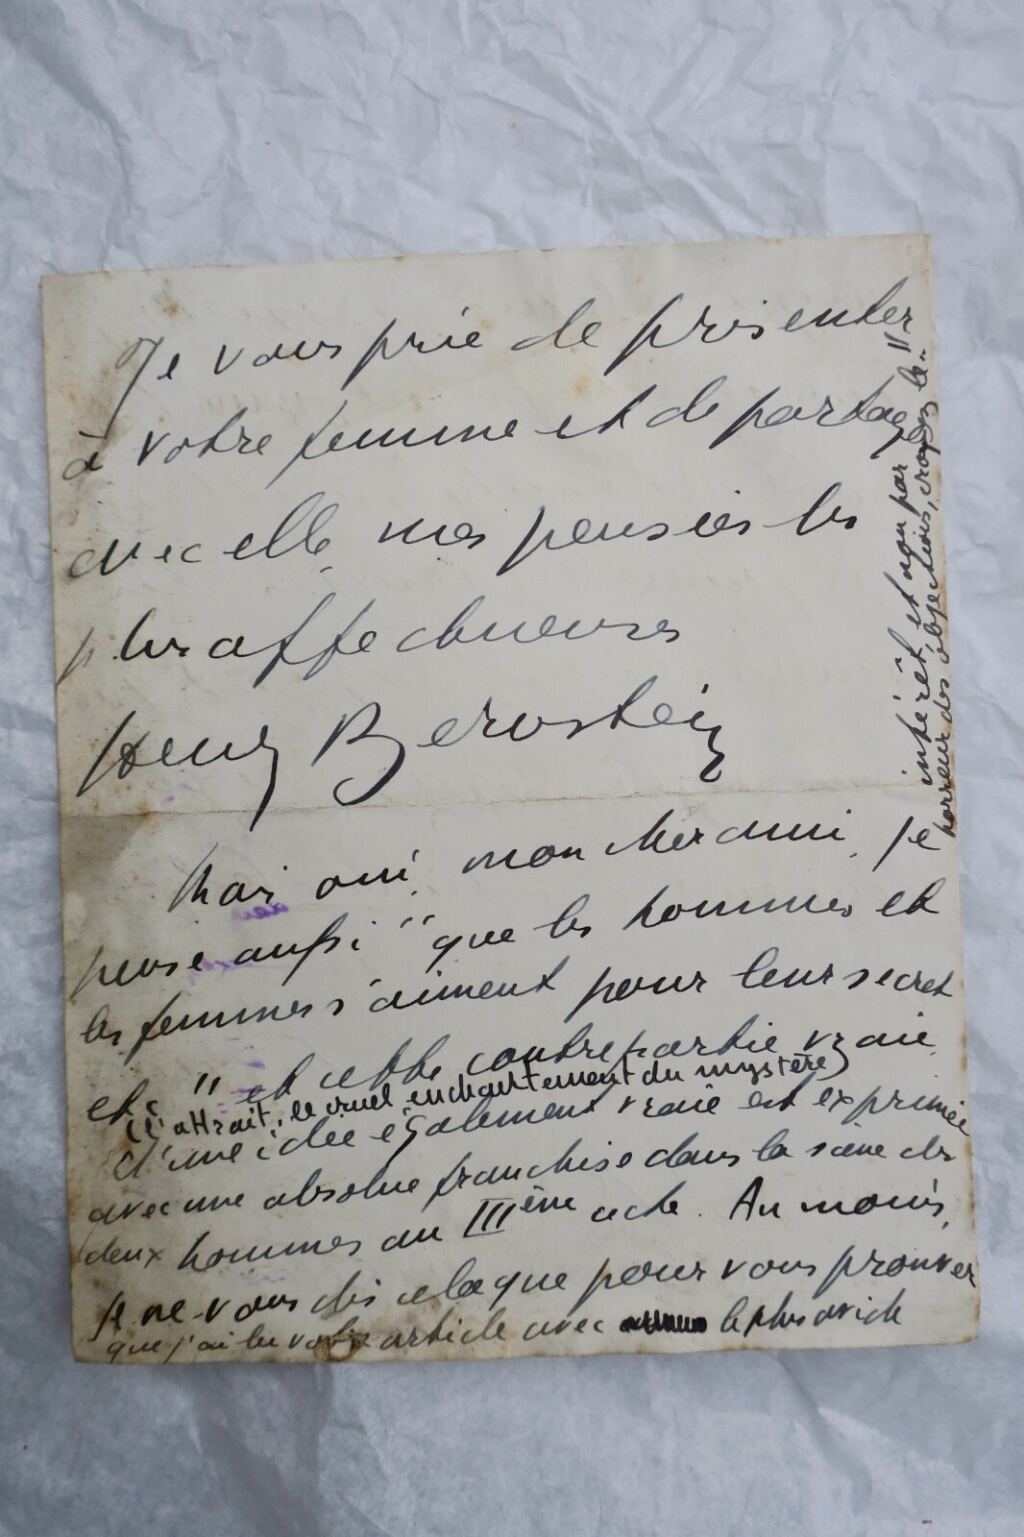 Je vous prie de présenter
à votre femme et de partager
avec elle, mes pensées les
plus affectueuses
Henry Bernstein
Mais oui, mon cher ami, je
pense aussi "que les hommes et
les femmes s'aiment pour leur secret
etc" et cette contrepartie vraie
(l'attrait, le cruel enchantement du mystère)
d'une idée également vraie est exprimée
avec une absolue franchise dans la scène des
deux hommes au IIIème acte. Au moins,
je ne vous dis cela que pour vous prouver
que j'ai lu votre article avec le plus avide
intérêt, et non par
horreur des objections, croyez le!!